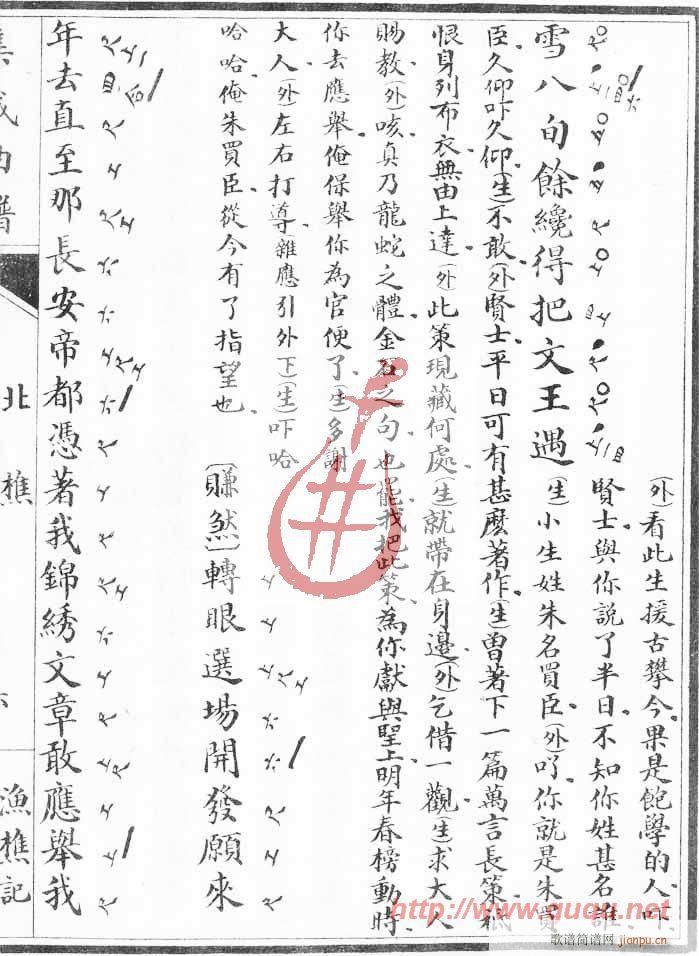 (外)看此生援古攀今、果是飽學的人、吓
賢士、與你說了半日、不知你姓甚名誰、
雪八旬餘纔得把文王遇(生)小生姓朱名買臣、(外)吖、你就是朱買
臣、久仰吓久仰、(生)不敢、(外)賢士、平日可有甚麼著作、(生)曾著下一篇萬言長策、祇
恨身列布衣、無由上達、(外)此策現藏何處、(生)就帶在身邊、(外)乞借一觀、(生)求大人
賜教、(外)咳、真乃龍蛇之體、金石之句也、能我把此策、為你獻與聖上、明年春榜動時、
你去應舉、俺保舉你為官便了、(生)多謝
大人、(外)左右打導、(雜應引外下)(生)吓哈
哈哈、俺朱買臣、從今有了指望也、
(賺煞)轉眼選場開發願來
年去直至那長安帝都憑著我錦綉文章敢應舉我
集成曲譜
北樵
漁樵記
http://www.ququ.net
歌谱简谱网
jianpu.cn